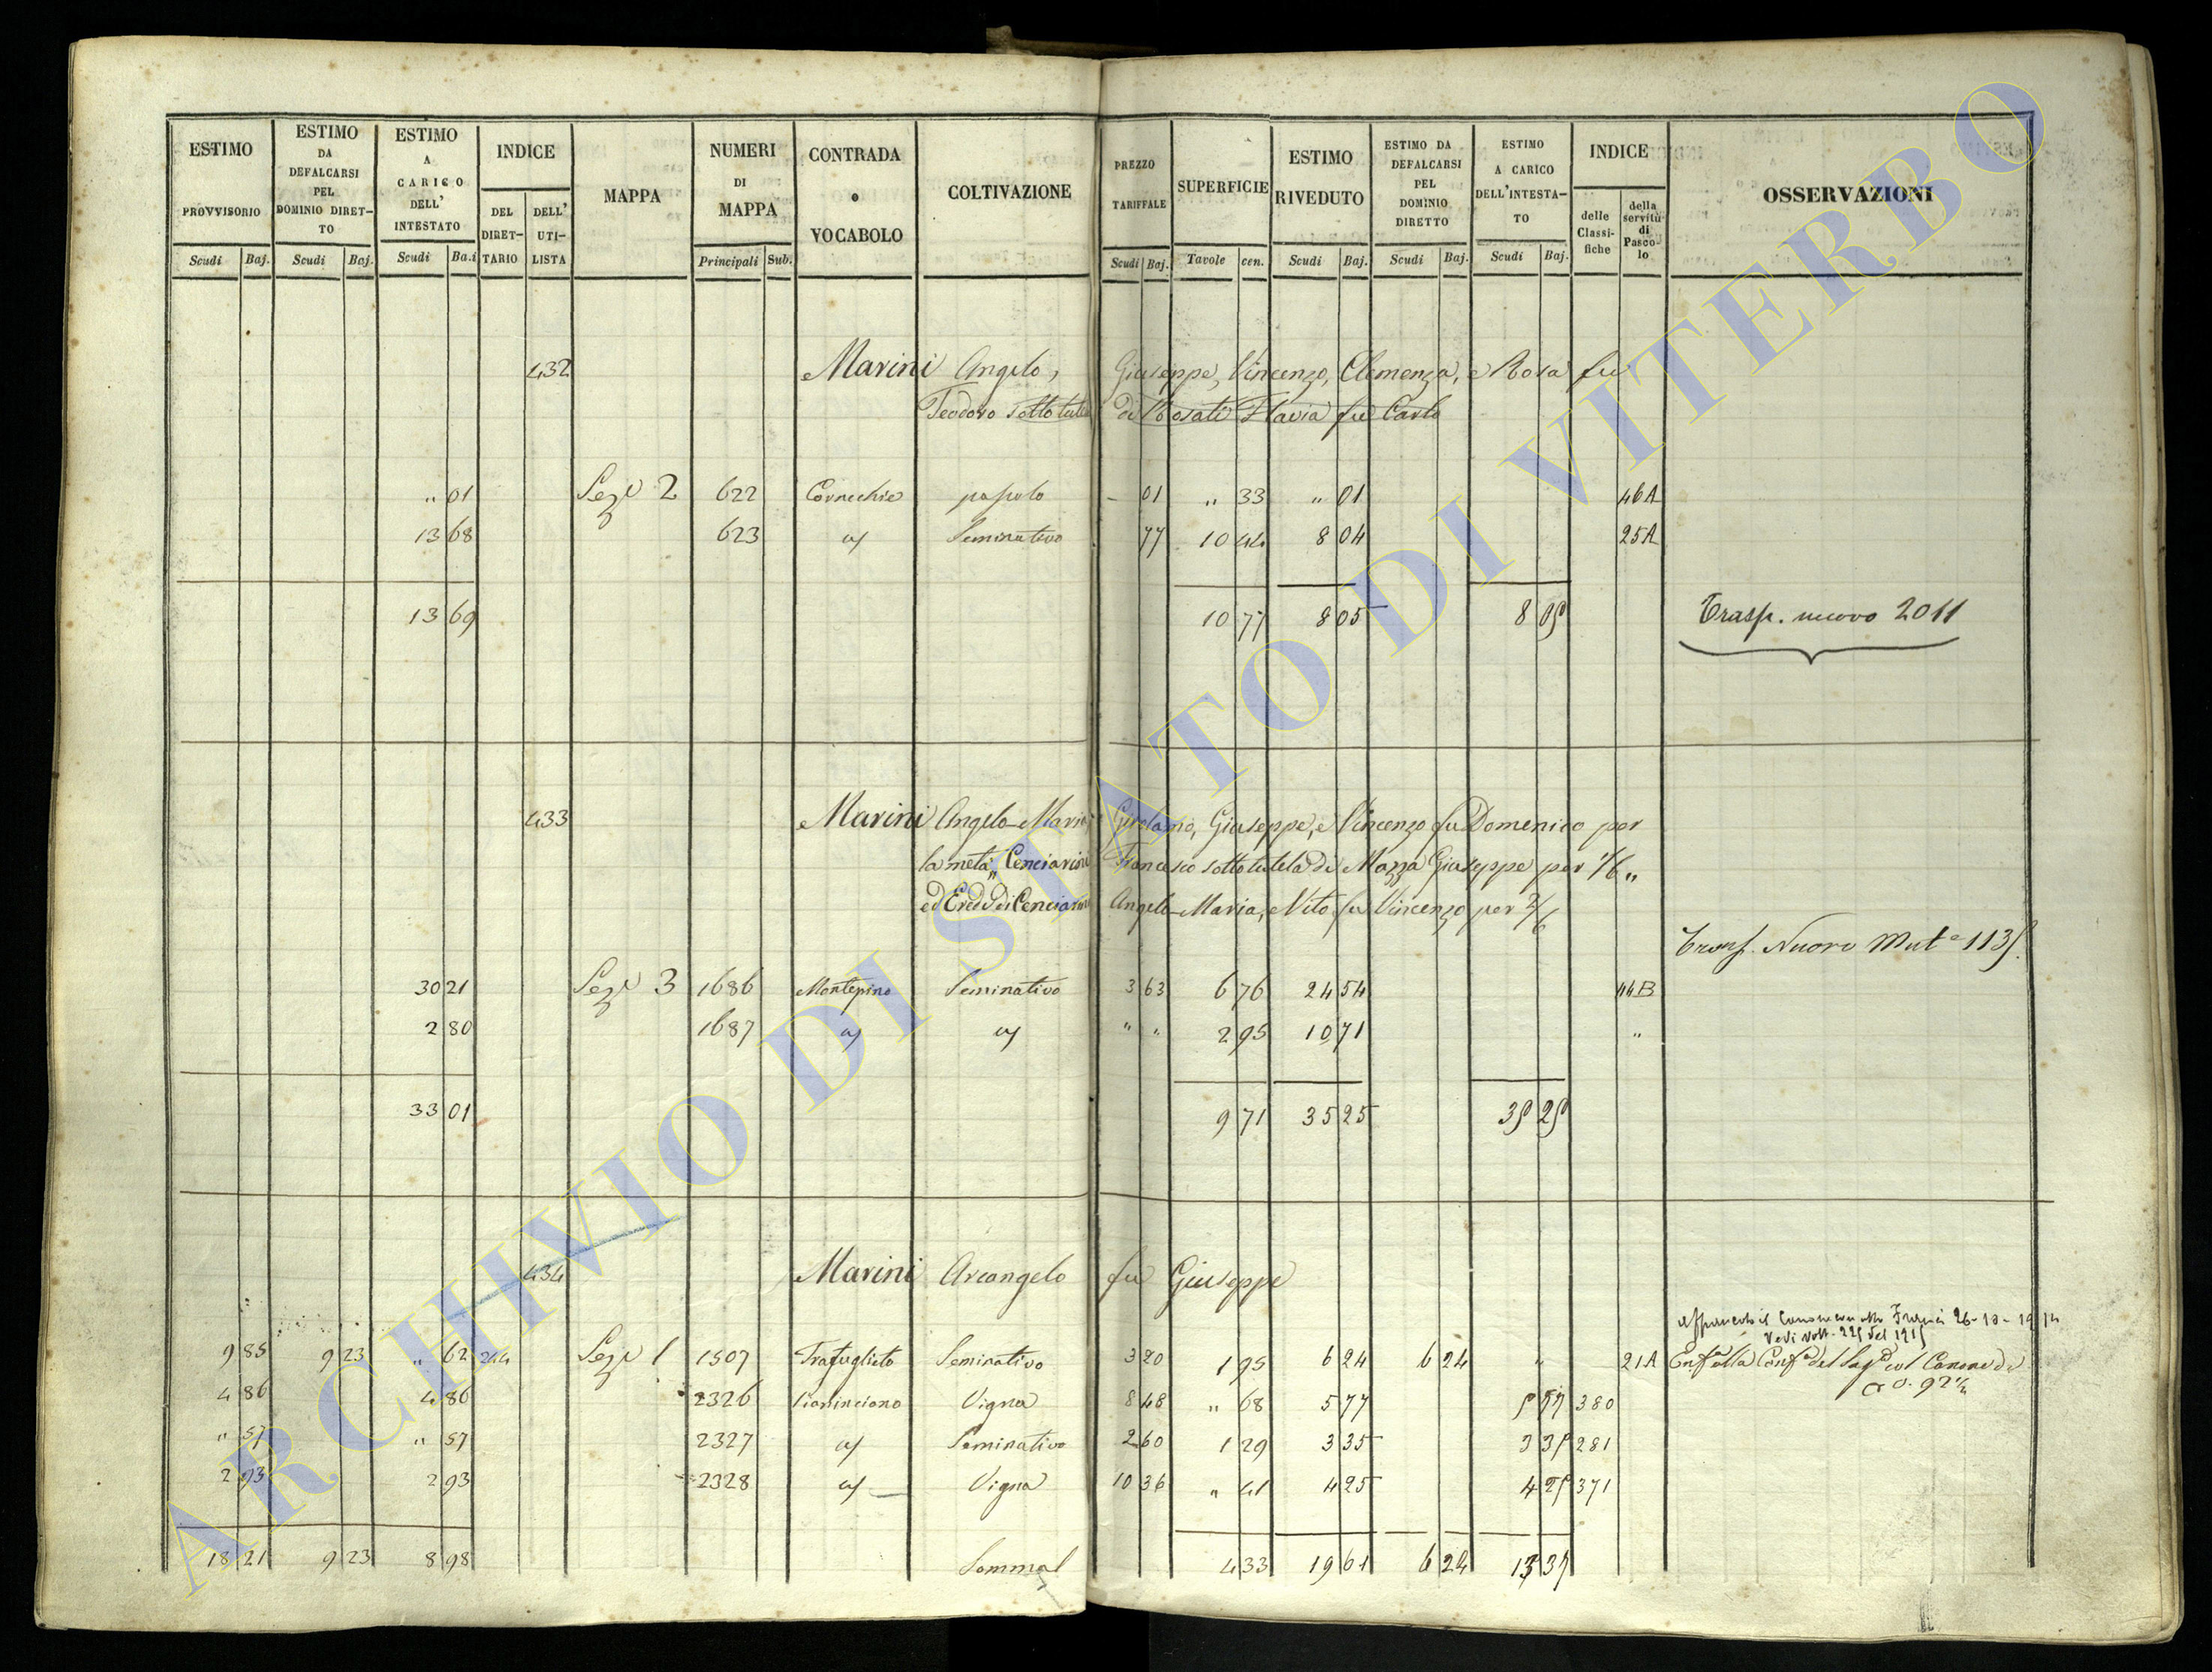 ESTIMO PROVVISORIO Scudi Baj. ESTIMO DA DEFALCARSI PEL DOMINIO DIRET-TO Scudi Baj. ESTIMO A CARICO DELL' INTESTATO Scudi Ba.i INDICE DEL DIRET-TARIO DELL' UTI-LISTA MAPPA NUMERI DI MAPPA Principali Sub. CONTRADA o VOCABOLO COLTIVAZIONE PREZZO TARIFFALE Scudi Baj. SUPERFICIE Tavole cen. ESTIMO RIVEDUTO Scudi Baj. ESTIMO DA DEFALCARSI PEL DOMINIO DIRETTO Scudi Baj. ESTIMO A CARICO DELL'INTESTA-TO Scudi Baj. INDICE delle Classi-fiche della servitù di Pasco-lo OSSERVAZIONI
432 Marini Angelo, Giuseppe, Vincenzo, Clemenza, e Rosa fu
Teodoro sotto tutela di Rosati Flavia fu Carlo
" 01 Sez.e 2 622 Cornechie pascolo - 01 " 33 " 01 46A
13 68 623 a/ Seminativo 77 10 44 8 04 25A
13 69 10 77 8 05 8 05 Trasp. nuovo 2011
433 Marini Angelo Maria, Girolamo, Giuseppe, e Vincenzo fu Domenico per
la metà, Cenciarini Francesco sotto tutela di Mazza Giuseppe per 1/6 "
ed Eredi di Cenciarini Angelo Maria, e Vito fu Vincenzo per 2/6
Trasp. Nuovo Mut.e 1135.
30 21 Sez.e 3 1686 Montepino Seminativo 3 63 6 76 24 54 44B
2 80 1687 a/ a/ " " 2 95 10 71 "
33 01 9 71 35 25 35 25
434 Marini Arcangelo fu Giuseppe
26-10-1914
Vedi Volt. 225 del 1915
9 85 9 23 " 62 244 Sez.e 1 1507 Seminativo 3 20 1 95 6 24 6 24 " 21A Canone di
4 86 4 86 2326 Vigna 8 48 " 68 5 77 5 77 380 0. 92 1/2
" 57 " 57 2327 a/ Seminativo 2 60 1 29 3 35 3 35 281
2 93 2 93 2328 a/ Vigna 10 36 " 41 4 25 4 25 371
18 21 9 23 8 98 Somma 4 33 19 61 6 24 13 37
ARCHIVIO DI STATO DI VITERBO